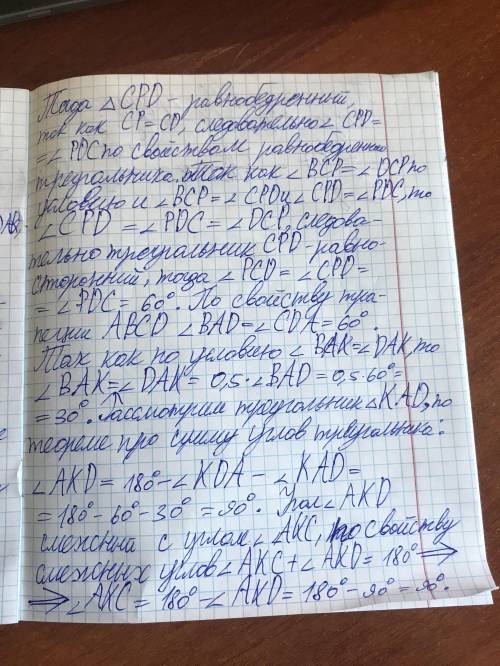 Тогда △CPD - равнобедренный,
так как CP = CD, следовательно ∠CPD =
= ∠PDC по свойством равнобедренно
треугольника. Так как ∠BCP = ∠DCP по
условию и ∠BCP = ∠CPD и ∠CPD = ∠PDC, то
∠CPD = ∠PDC = ∠DCP, следова-
тельно треугольник CPD - равно-
сторонний, тогда ∠PCD = ∠CPD =
= ∠PDC = 60°. По свойству тра-
пеции ABCD ∠BAD = ∠CDA = 60°.
Так как по условию ∠BAK = ∠DAK, то
∠BAK = ∠DAK = 0,5 · ∠BAD = 0,5 · 60° =
= 30°. Рассмотрим треугольник △KAD, по
теореме про сумму углов треугольника:
∠AKD = 180° - ∠KDA - ∠KAD =
= 180° - 60° - 30° = 90°. Угол ∠AKD
смежный с углом ∠AKC, по свойству
смежных углов ∠AKC + ∠AKD = 180° ⟹
⟹ ∠AKC = 180° - ∠AKD = 180° - 90° = 90°.